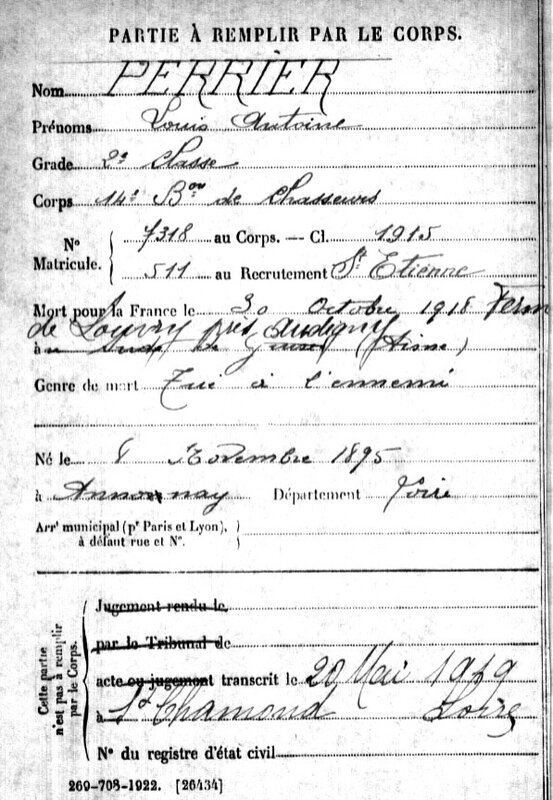 PARTIE À REMPLIR PAR LE CORPS.
Nom PERRIER
Prénoms Louis Antoine
Grade 2e classe
Corps 14e Bon de Chasseurs
N° Matricule. 7318 au Corps. — Cl. 1915
511 au Recrutement St Etienne
Mort pour la France le 30 Octobre 1918 Ferme
de Louvry près Audigny
à au Sud de Guise (Aisne)
Genre de mort Tué à l'ennemi
Né le 8 Novembre 1895
à Annonay Département Loire
Arrt municipal (pr Paris et Lyon),
à défaut rue et N°.
Cette partie n'est pas à remplir par le Corps.
Jugement rendu le
par le Tribunal de
acte ou jugement transcrit le 20 Mai 1919
à St Chamond Loire
N° du registre d'état civil
269-708-1922. [26434]